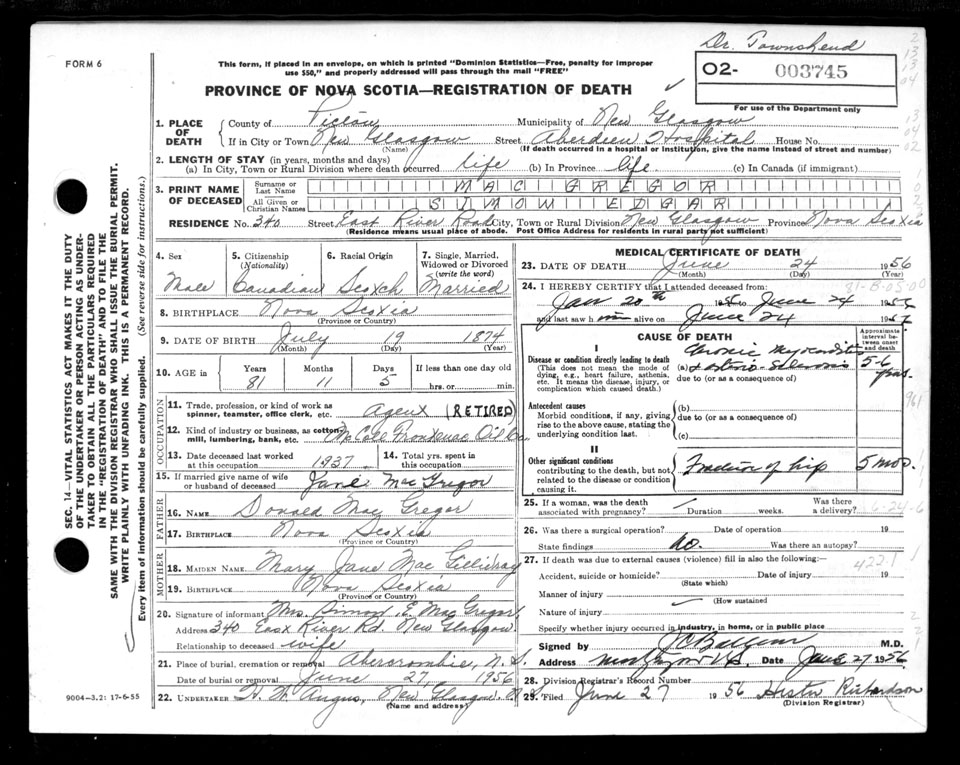 Dr. Townshend
FORM 6
This form, if placed in an envelope, on which is printed "Dominion Statistics—Free, penalty for improper use $50," and properly addressed will pass through the mail "FREE"
02- 003745
For use of the Department only
PROVINCE OF NOVA SCOTIA—REGISTRATION OF DEATH
1. PLACE OF DEATH
County of Pictou Municipality of New Glasgow
If in City or Town New Glasgow Street Aberdeen Hospital House No.
(Name) (If death occurred in a hospital or institution, give the name instead of street and number)
2. LENGTH OF STAY (in years, months and days)
(a) In City, Town or Rural Division where death occurred life (b) In Province life (c) In Canada (if immigrant)
3. PRINT NAME OF DECEASED
Surname or Last Name MAC GREGOR
All Given or Christian Names SIMON EDGAR
RESIDENCE No. 340 Street East River Road City, Town or Rural Division New Glasgow Province Nova Scotia
(Residence means usual place of abode. Post Office Address for residents in rural parts not sufficient)
4. Sex Male
5. Citizenship (Nationality) Canadian
6. Racial Origin Scotch
7. Single, Married, Widowed or Divorced (write the word) Married
8. BIRTHPLACE Nova Scotia
(Province or Country)
9. DATE OF BIRTH July 19 1874
(Month) (Day) (Year)
10. AGE in Years 81 Months 11 Days 5 If less than one day old hrs. or min.
OCCUPATION
11. Trade, profession, or kind of work as spinner, teamster, office clerk, etc. Agent (RETIRED)
12. Kind of industry or business, as cotton-mill, lumbering, bank, etc. McColl Frontenac Oil Co.
13. Date deceased last worked at this occupation 1937
14. Total yrs. spent in this occupation
15. If married give name of wife or husband of deceased Jane MacGregor
FATHER
16. NAME Donald MacGregor
17. BIRTHPLACE Nova Scotia
(Province or Country)
MOTHER
18. MAIDEN NAME Mary Jane MacGillivray
19. BIRTHPLACE Nova Scotia
(Province or Country)
20. Signature of informant Mrs. Simon E. MacGregor
Address 340 East River Rd. New Glasgow.
Relationship to deceased wife
21. Place of burial, cremation or removal Abercrombie, N.S.
Date of burial or removal June 27 1956
22. UNDERTAKER Angus, New Glasgow, N.S.
(Name and address)
MEDICAL CERTIFICATE OF DEATH
23. DATE OF DEATH June 24 1956
(Month) (Day) (Year)
24. I HEREBY CERTIFY that I attended deceased from:
81-B-05-00
Jan 20th 1956 to June 24 1956
and last saw h im alive on June 24 1956
CAUSE OF DEATH
Approximate interval between onset and death
I
Disease or condition directly leading to death
(This does not mean the mode of dying, e.g., heart failure, asthenia, etc. It means the disease, injury, or complication which caused death.)
(a) Chronic Myocarditis
& Arterio-Sclerosis 5-6 yrs.
due to (or as a consequence of)
Antecedent causes
Morbid conditions, if any, giving rise to the above cause, stating the underlying condition last.
(b)
due to (or as a consequence of)
(c)
II
Other significant conditions
contributing to the death, but not related to the disease or condition causing it.
Fracture of hip 5 mos.
25. If a woman, was the death associated with pregnancy? Duration weeks. Was there a delivery?
26. Was there a surgical operation? Date of operation 19
State findings no Was there an autopsy?
27. If death was due to external causes (violence) fill in also the following:
422.1
Accident, suicide or homicide? Date of injury 19
(State which)
Manner of injury
(How sustained
Nature of injury
Specify whether injury occurred in industry, in home, or in public place
Signed by M.D.
Address New Glasgow N.S. Date June 27 1956
28. Division Registrar's Record Number
29. Filed June 27 1956 Hester Richardson
(Division Registrar)
SEC. 14—VITAL STATISTICS ACT MAKES IT THE DUTY OF THE UNDERTAKER OR PERSON ACTING AS UNDERTAKER TO OBTAIN ALL THE PARTICULARS REQUIRED IN THE "REGISTRATION OF DEATH" AND TO FILE THE SAME WITH THE DIVISION REGISTRAR WHO SHALL ISSUE THE BURIAL PERMIT.
WRITE PLAINLY WITH UNFADING INK. THIS IS A PERMANENT RECORD.
Every item of information should be carefully supplied. (See reverse side for instructions.)
9004-3.2: 17-6-55